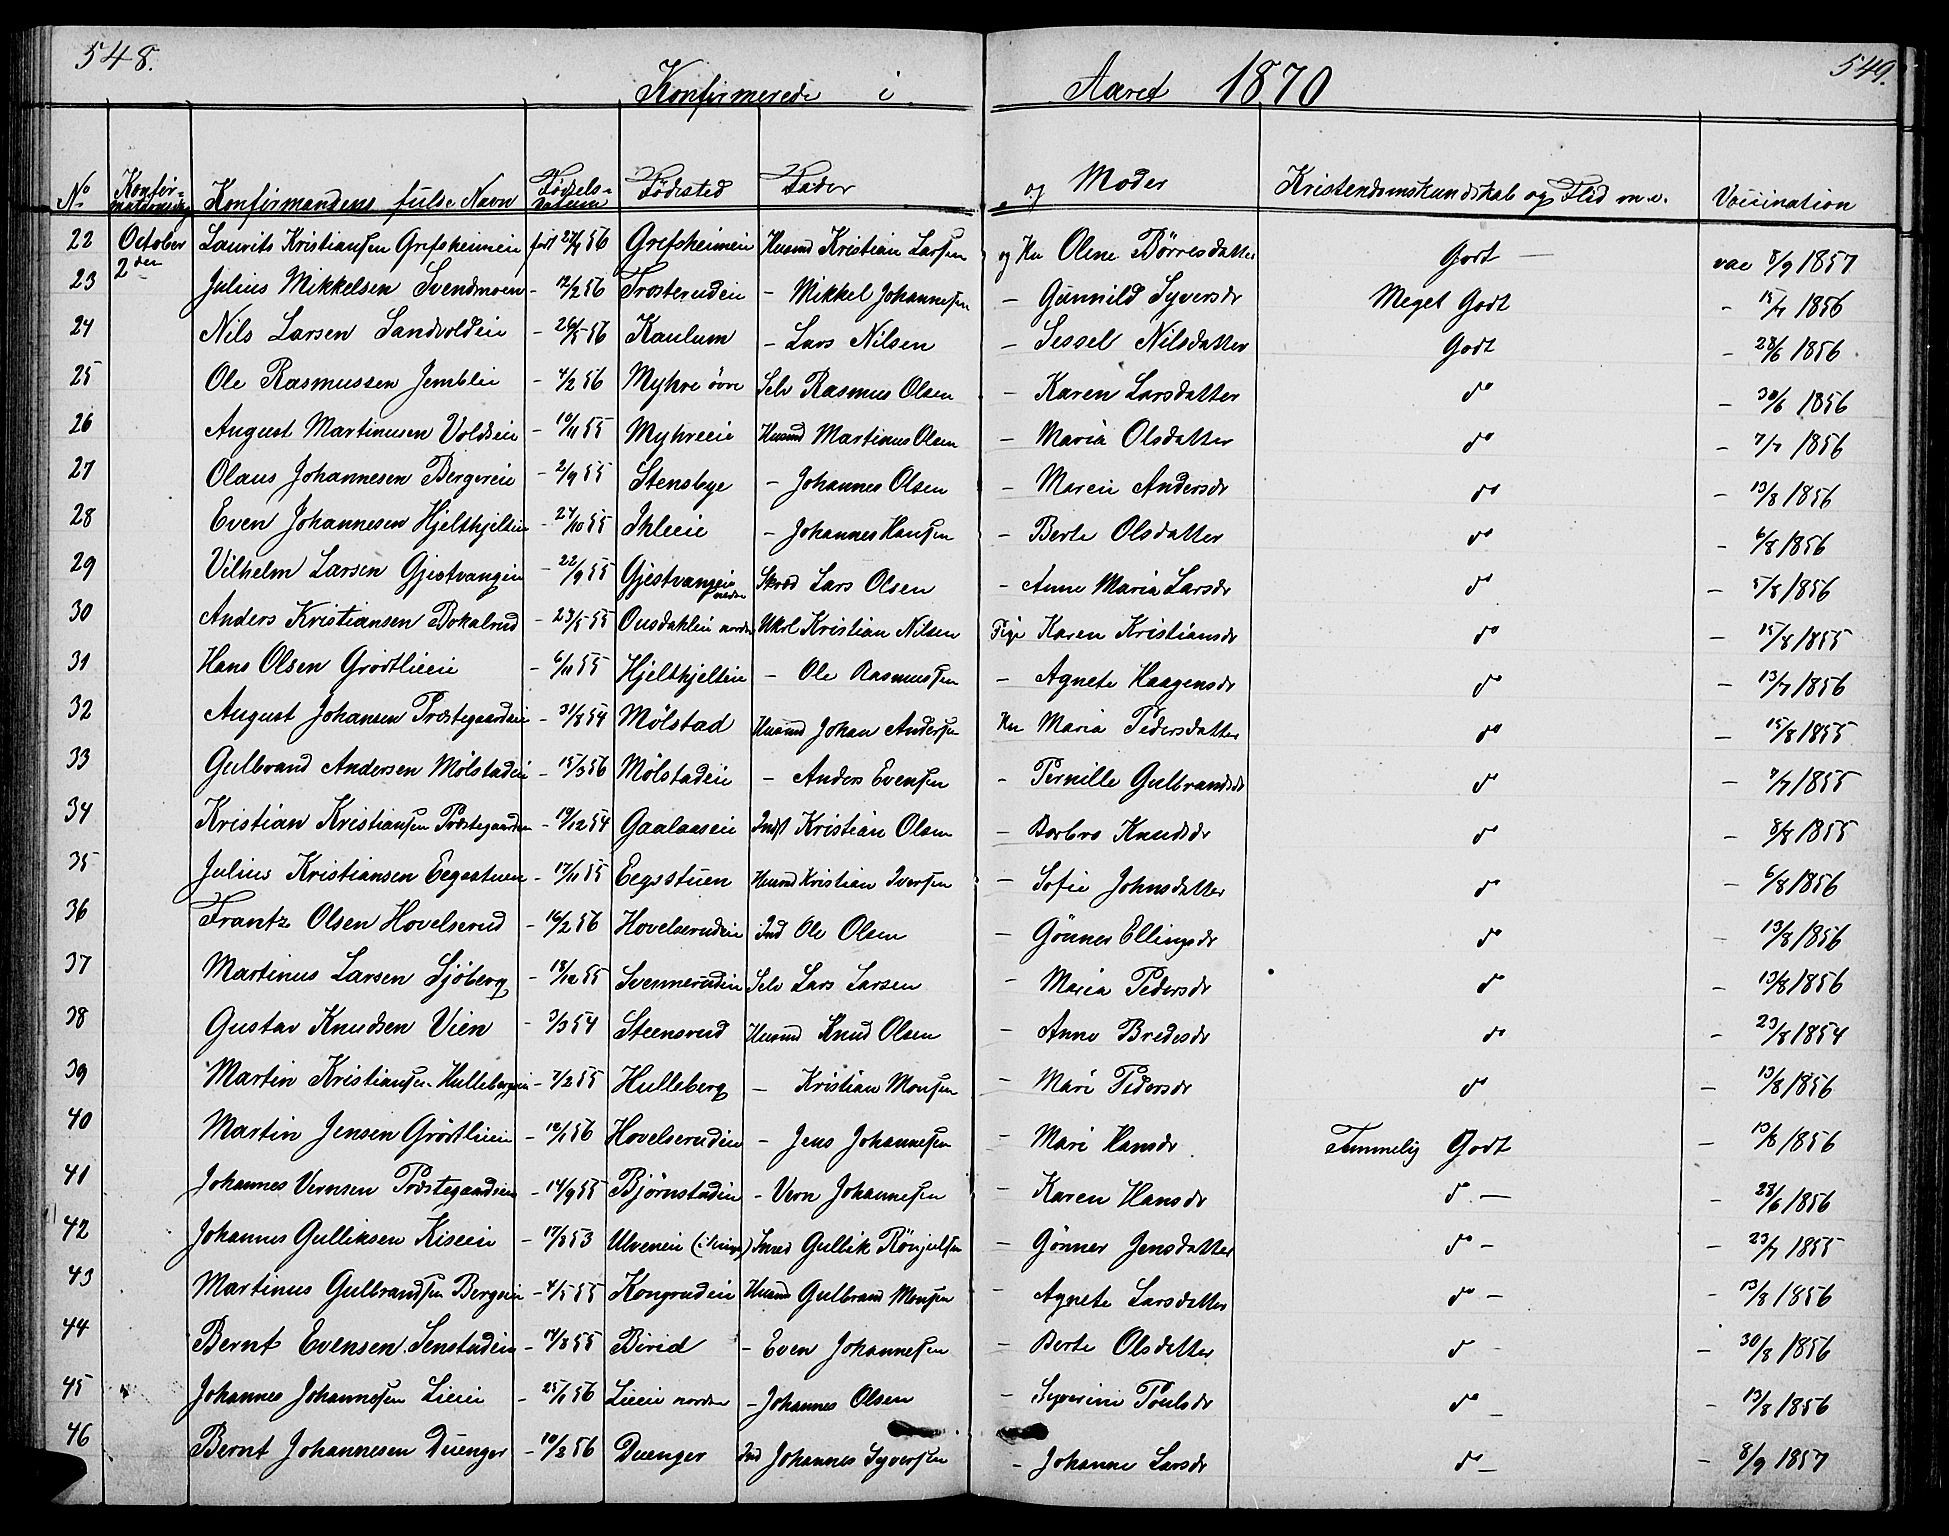 548. 549.
Konfirmerede i Aaret 1870
No Konfirmationsdag Konfirmandens fulde Navn Fødselsdatum Fødested Fader og Moder Kristendomskundskab og Flid m.v. Vaccination
22 October 2den Laurits Kristiansen Grefsheimeie født 56 Grefsheimeie Husmd Kristian Larsen og Hu Olene Børresdatter Godt — vac 8/9 1857
23 Julius Mikkelsen Svendmoen - 12/2 56 Trosterudeie - Mikkel Johannesen — Gunnild Syversdr Meget Godt - 15/7 1856
24 Nils Larsen Sandvoldeie - 26/5 56 Kaulum - Lars Nilsen — Sessel Nilsdatter Godt - 28/6 1856
25 Ole Rasmussen Jemblie - 4/2 56 Myhre øvre Selv Rasmus Olsen — Karen Larsdatter do - 30/6 1856
26 August Martinusen Voldeie - 10/11 55 Myhreeie Husmd Martinus Olsen — Maria Olsdatter do - 7/7 1856
27 Olaus Johannesen Bergereie - 2/9 55 Stensbye - Johannes Olsen — Maren Andersdr do - 13/8 1856
28 Even Johannesen Hjelthjelteie - 27/10 55 Ihleeie - Johannes Hansen - Berte Olsdatter do - 6/8 1856
29 Vilhelm Larsen Gjestvangeie - 22/9 55 Gjestvangeie nedre Skræd Lars Olsen - Anne Maria Larsdr do - 5/8 1856
30 Anders Kristiansen Bokalrud - 23/5 55 Ousdahleie nordre Ukrl Kristian Nilsen Pige Karen Kristiansdr do - 15/8 1855
31 Hans Olsen Grøtlieeie - 6/11 55 Hjelthjelteie - Ole Rasmussen - Agnete Haagensdr do - 13/7 1856
32 August Johansen Præstegaardseie - 31/8 54 Mølstad Husmd Johan Andersen Hu Maria Pedersdatter do - 15/8 1855
33 Gulbrand Andersen Mølstadeie - 15/3 56 Mølstadeie - Anders Evensen - Pernille Gulbrandsdr do - 7/7 1855
34 Kristian Kristiansen Præstegaardseie - 19/12 54 Gaalaaseie Indst Kristian Olsen - Barbro Knudsdr do - 8/8 1855
35 Julius Kristiansen Eegsstuen - 17/11 55 Eegsstuen Husmd Kristian Iversen — Sofie Johnsdatter do - 6/8 1856
36 Frantz Olsen Hovelserud - 16/2 56 Hovelserudeie Ind Ole Olsen — Gønner Ellingsdr do - 13/8 1856
37 Martinus Larsen Sjøberg - 18/12 55 Svennerudeie Selv Lars Larsen — Maria Pedersdr do - 13/8 1856
38 Gustav Knudsen Vien - 3/3 54 Steensrud Husmd Knud Olsen — Anne Bredesdr do - 23/8 1854
39 Martin Kristiansen Hullebergeie - 7/2 55 Hulleberg — Kristian Monsen — Mari Pedersdr do - 13/8 1856
40 Martin Jensen Grøtlieeie - 10/1 56 Hovelserudeie - Jens Johannesen — Mari Hansdr Temmelig Godt - 13/8 1856
41 Johannes Vernsen Præstegaardseie - 14/9 55 Bjørnstadeie - Vern Johannesen — Karen Hansdr do — - 28/6 1856
42 Johannes Gulliksen Kiseeie - 17/8 53 Ulveneie Gullik — Gønner Jensdatter do - - 23/7 1855
43 Martinus Gulbrandsen Bergeie - 4/5 55 Kongrudeie Husmd Gulbrand Monsen - Agnete Larsdatter do - - 13/8 1856
44 Bernt Evensen Senstadeie - 14/8 55 Birid - Even Johannesen - Berte Olsdatter do - - 30/8 1856
45 Johannes Johannesen Lieeie - 25/1 56 Lieeie nordre - Johannes Olsen - Syverine Poulsdr do - - 13/8 1856
46 Bernt Johannesen Duenger - 10/3 56 Duenger Ind Johannes Syversen - Johanne Larsdr do - - 8/9 1857